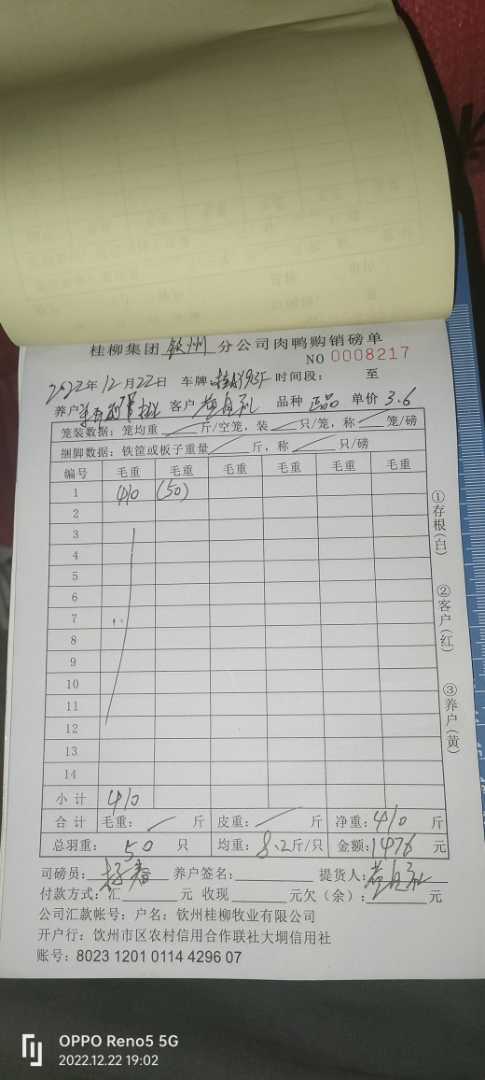 桂柳集团 钦州 分公司肉鸭购销磅单
NO 0008217
2022年12月22日 车牌 时间段: 至
养户 客户 品种 正品 单价 3.6
笼装数据: 笼均重 斤/空笼, 装 只/笼, 称 笼/磅
捆脚数据: 铁筐或板子重量 斤, 称 只/磅
编号 毛重 毛重 毛重 毛重 毛重 毛重
1 410 (50)
2
3
4
5
6
7
8
9
10
11
12
13
14
小计 410
合计 毛重: 斤 皮重: 斤 净重: 410 斤
总羽重: 50 只 均重: 8.2 斤/只 金额: 1476 元
司磅员: 养户签名: 提货人:
付款方式: 汇 元 收现 元欠(余): 元
公司汇款帐号: 户名: 钦州桂柳牧业有限公司
开户行: 钦州市区农村信用合作联社大垌信用社
账号: 8023 1201 0114 4296 07
①存根(白) ②客户(红) ③养户(黄)
OPPO Reno5 5G
2022.12.22 19:02